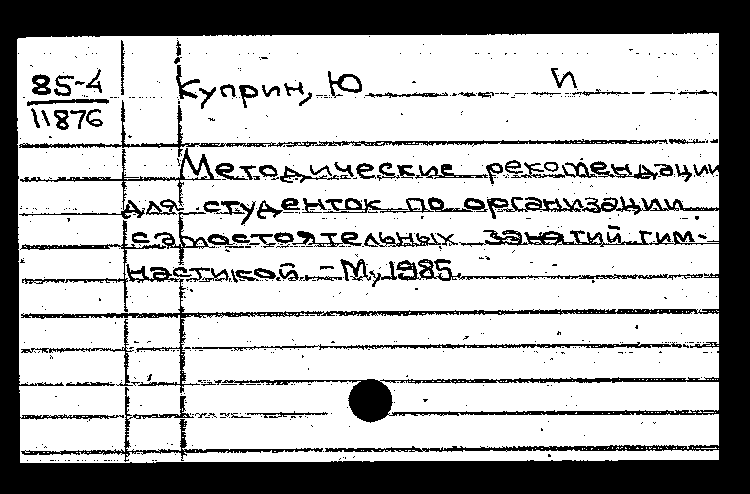 85-4
11876
Куприн, Ю И
Методические рекомендации
для студенток по организации
самостоятельных занятий гим-
настикой. - М., 1985.